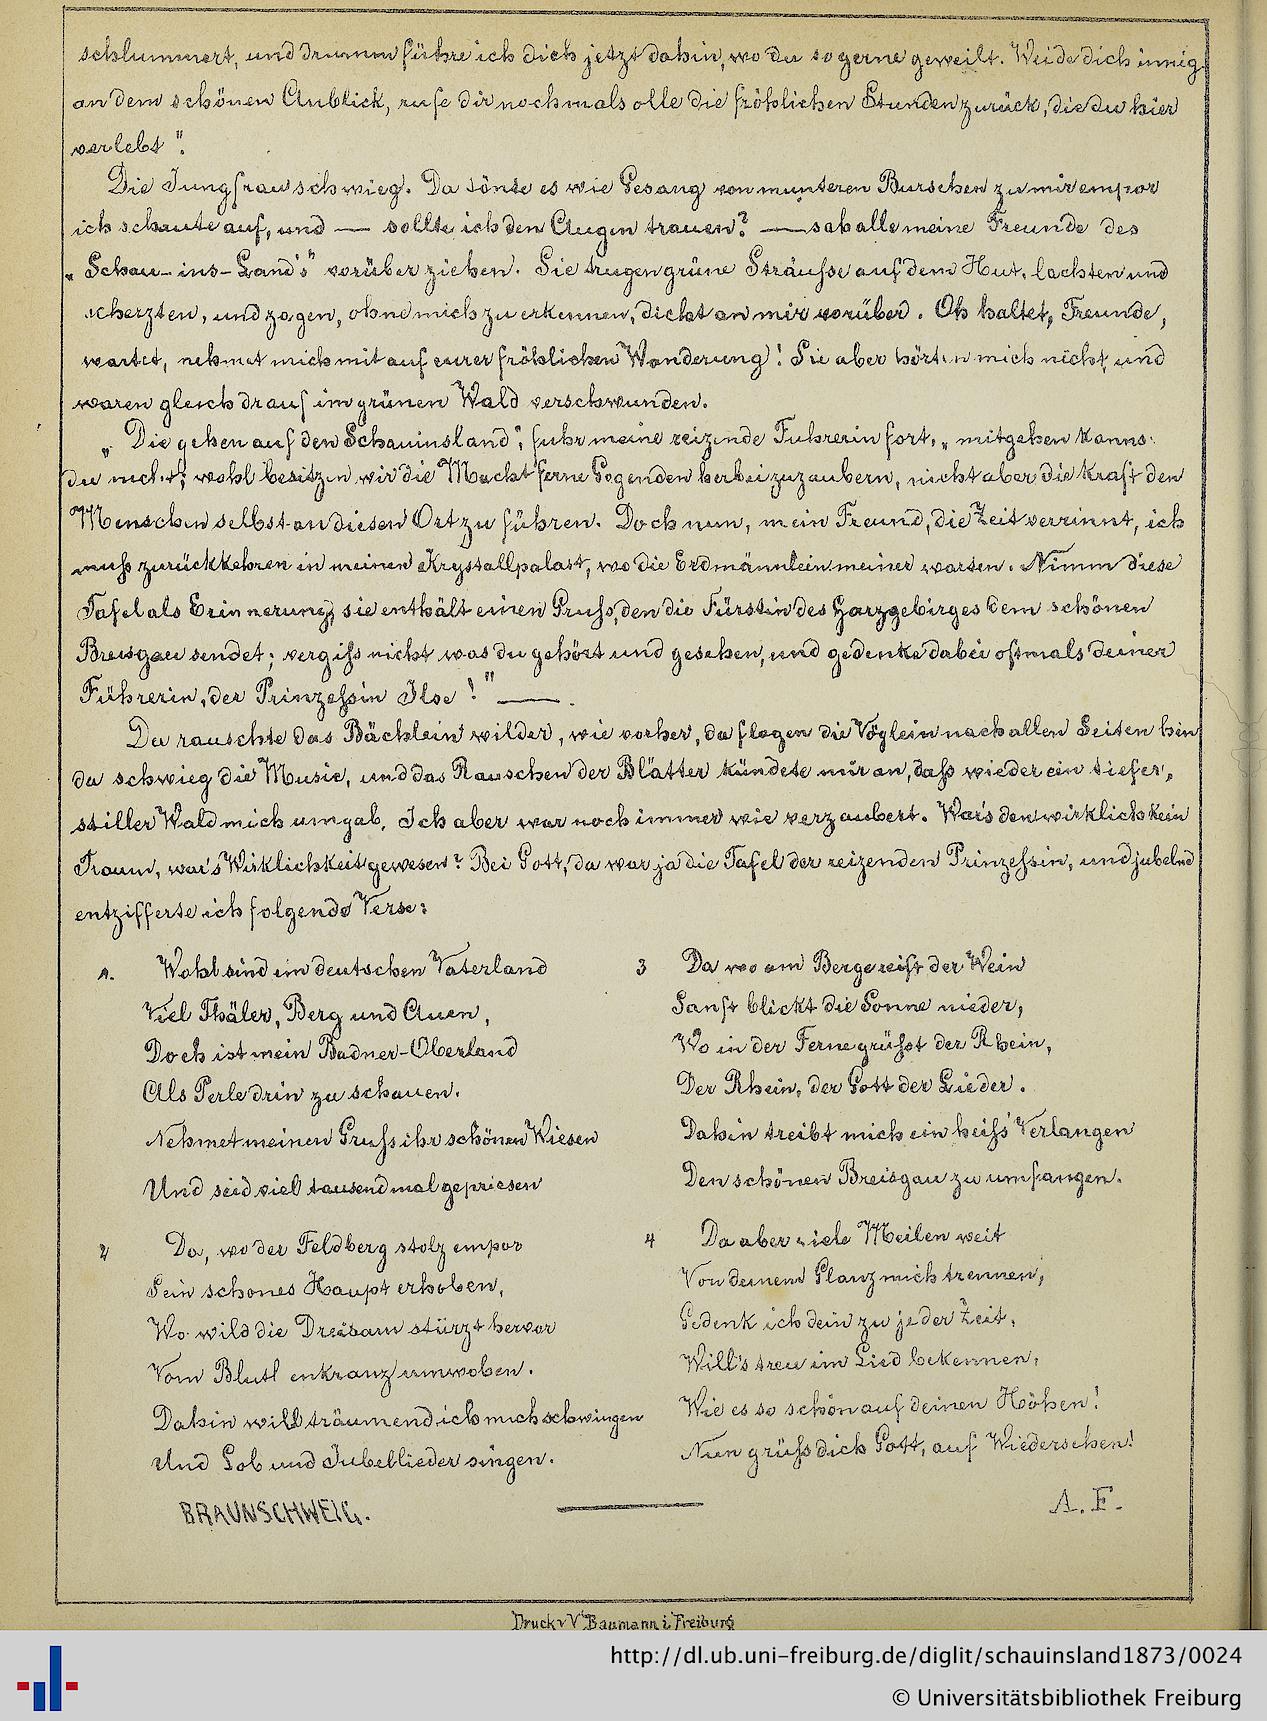 schlummert, und drumm führe ich dich jetzt dahin, wo du so gerne geweilt. Weide dich innig
an dem schönen Anblick, rufe dir nochmals alle die fröhlichen Stunden zurück, die du hier
verlebt".
Die Jungfrau schwieg. Da tönte es wie Gesang von munteren Burschen zu mir empor
ich schaute auf, und — sollte ich den Augen trauen? — sah alle meine Freunde des
„Schau-ins-Land's" vorüber ziehen. Sie trugen grüne Sträusse auf dem Hut, lachten und
scherzten, und zogen, ohne mich zu erkennen, dicht an mir vorüber. Oh haltet, Freunde,
wartet, nehmet mich mit auf eurer fröhlichen Wanderung! Sie aber hörten mich nicht und
waren gleich drauf im grünen Wald verschwunden.
„Die gehen auf den Schauinsland", fuhr meine reizende Führerin fort, „mitgehen kanns-
du nicht; wohl besitzen wir die Macht ferne Gegenden herbeizuzaubern, nicht aber die Kraft den
Menschen selbst an diesen Ort zu führen. Doch nun, mein Freund, die Zeit verrinnt, ich
muss zurückkehren in meinen Krystallpalast, wo die Erdmännlein meiner warten. Nimm diese
Tafel als Erinnerung, sie enthält einen Gruss, den die Fürstin des Harzgebirges dem schönen
Breisgau sendet; vergiss nicht was du gehört und gesehen, und gedenke dabei oftmals deiner
Führerin, der Prinzessin Ilse!" —.
Da rauschte das Bächlein wilder, wie vorher, da flogen die Vöglein nach allen Seiten hin
da schwieg die Music, und das Rauschen der Blätter kündete mir an, dass wieder ein tiefer,
stiller Wald mich umgab. Ich aber war noch immer wie verzaubert. War's den wirklich kein
Traum, war's Wirklichkeit gewesen? Bei Gott, da war ja die Tafel der reizenden Prinzessin, und jubelnd
entzifferte ich folgende Verse:
1. Wohl sind im deutschen Vaterland
Viel Thäler, Berg und Auen,
Doch ist mein Badner-Oberland
Als Perle drin zu schauen.
Nehmet meinen Gruss ihr schönen Wiesen
Und seid viel tausendmal gepriesen
2 Da, wo der Feldberg stolz empor
Sein schönes Haupt erhoben,
Wo wild die Dreisam stürzt hervor
Vom Blüthenkranz umwoben.
Dahin will träumend ich mich schwingen
Und Lob und Jubellieder singen.
3 Da wo am Berge reift der Wein
Sanft blickt die Sonne nieder,
Wo in der Ferne grüsst der Rhein,
Der Rhein, der Gott der Lieder.
Dahin treibt mich ein heiss Verlangen
Den schönen Breisgau zu umfangen.
4 Da aber viele Meilen weit
Von deinem Glanz mich trennen,
Gedenk ich dein zu jeder Zeit,
Will's treu im Lied bekennen,
Wie es so schön auf deinen Höhen!
Nun grüss dich Gott, auf Wiedersehen!
BRAUNSCHWEIG.
A. F.
Druck v V Baumann i. Freiburg
http://dl.ub.uni-freiburg.de/diglit/schauinsland1873/0024
© Universitätsbibliothek Freiburg